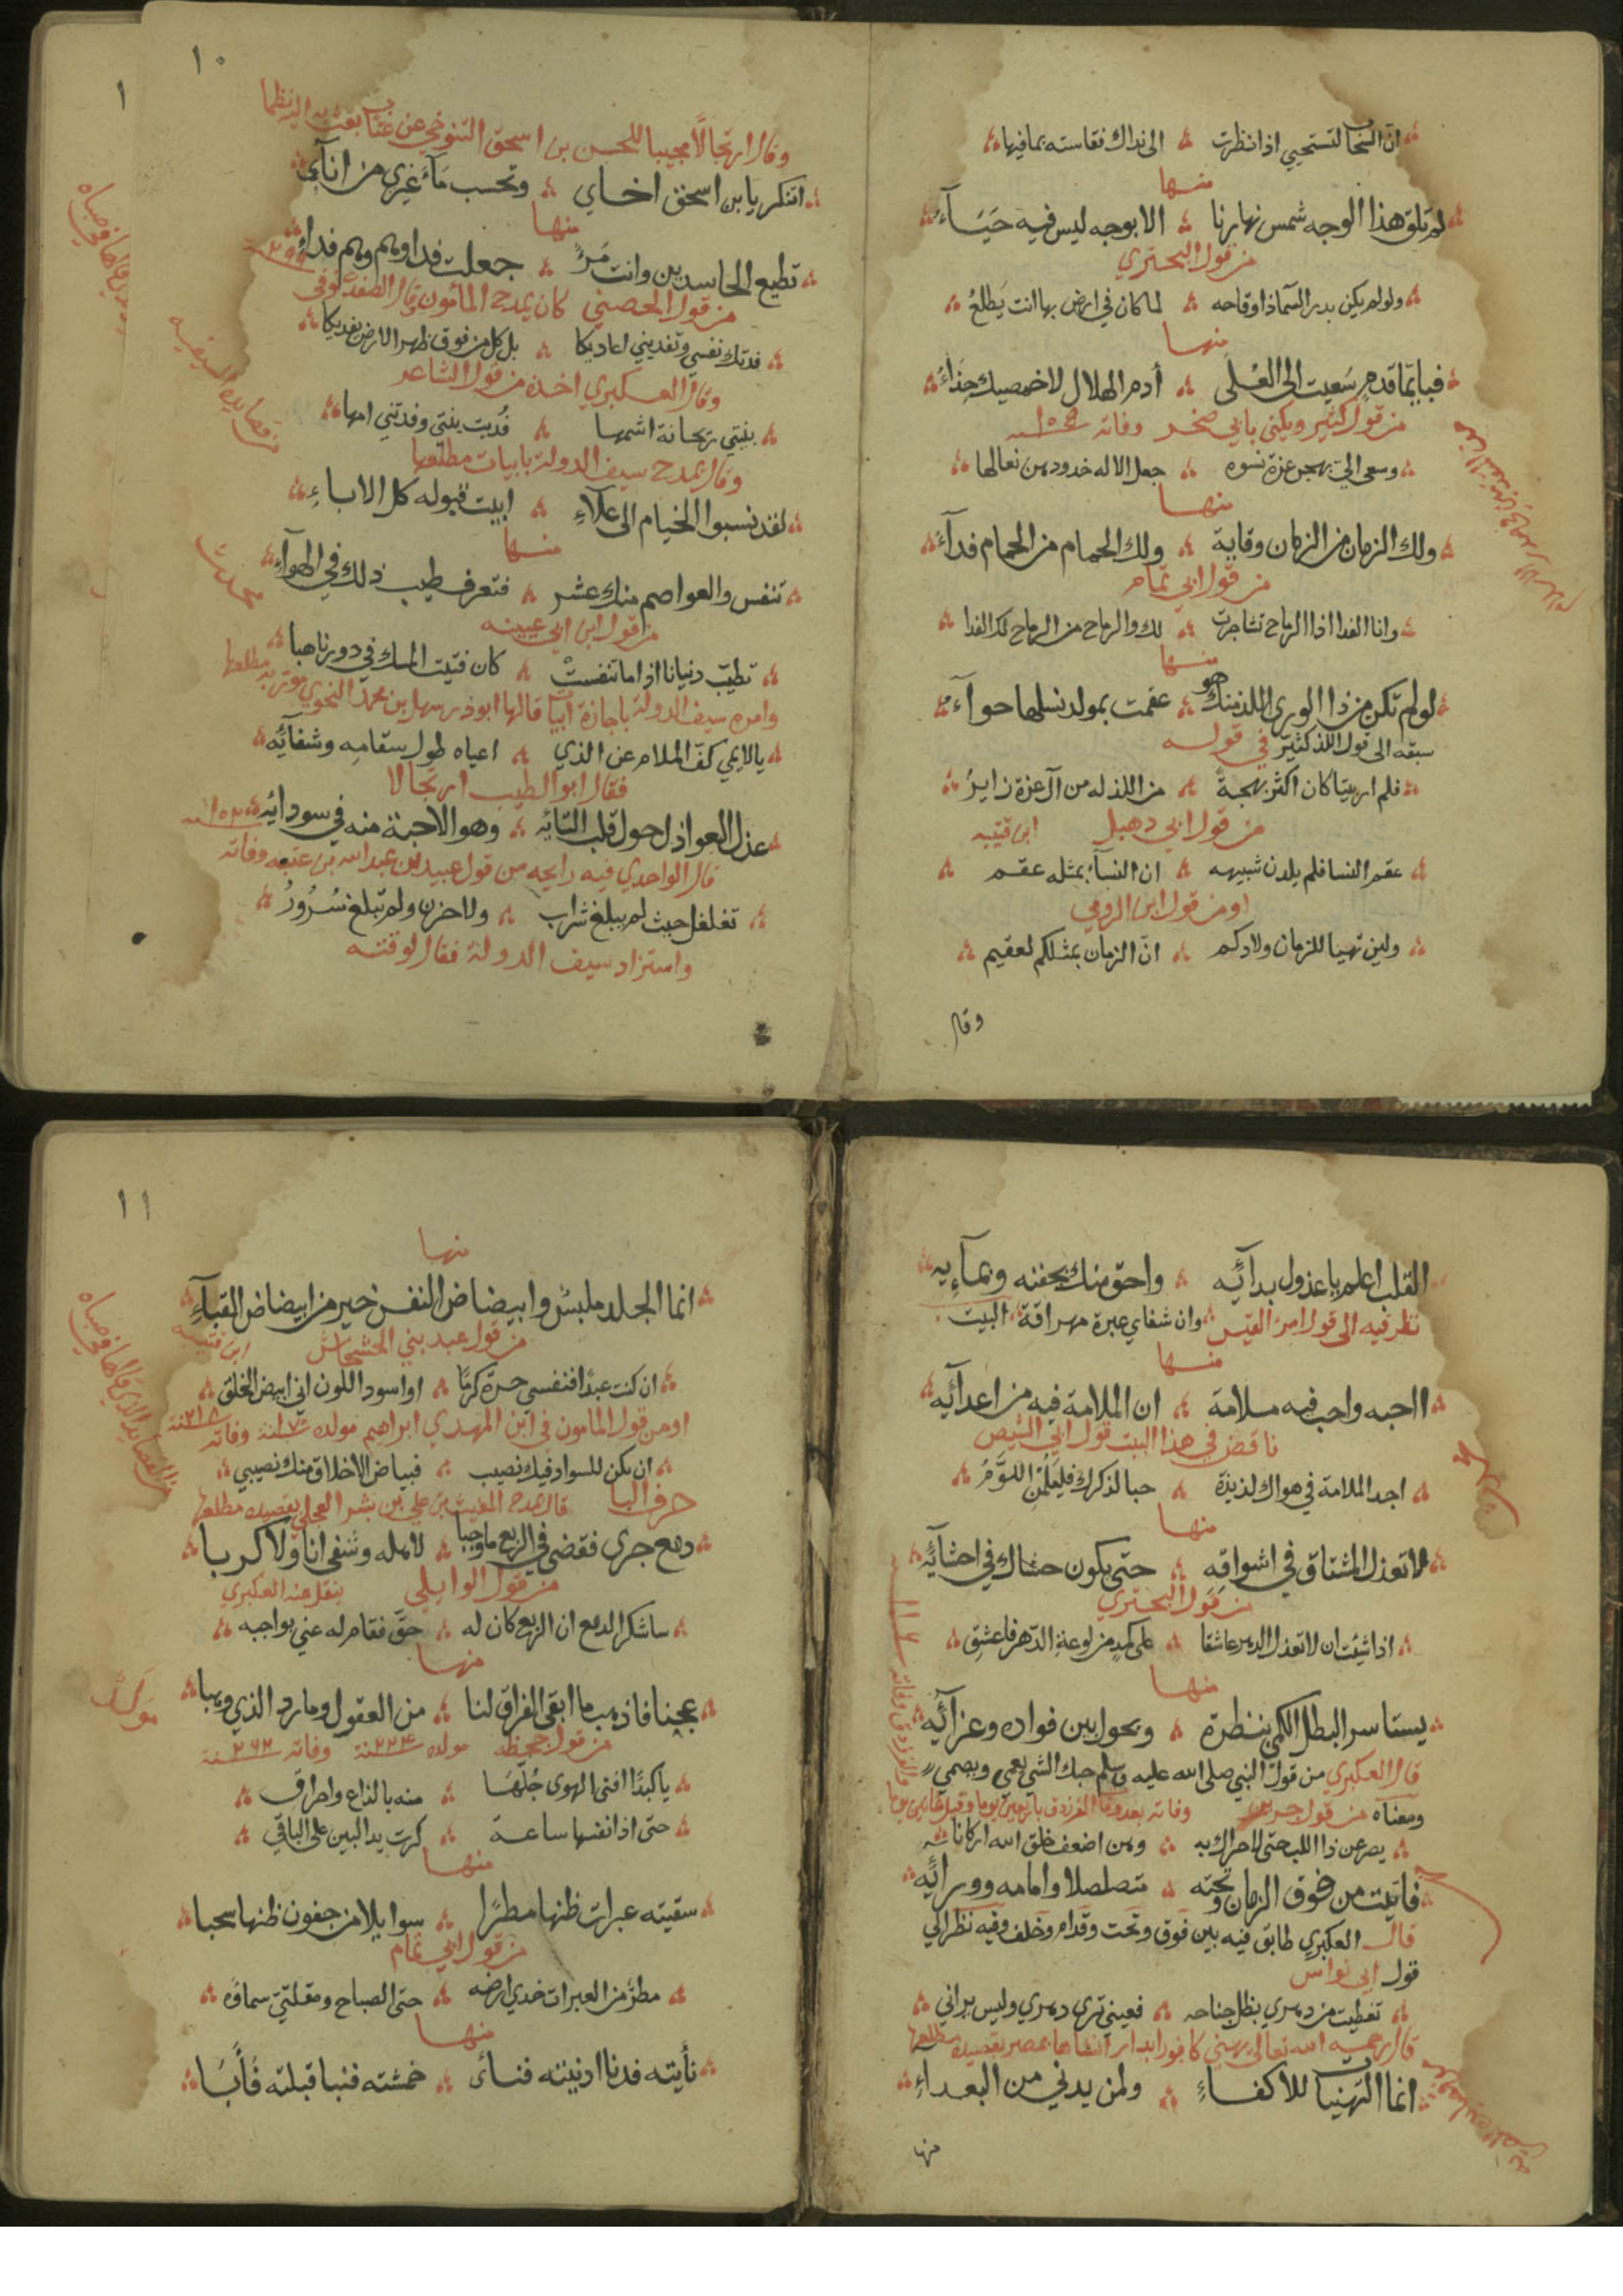 ان السحاب لتستحيي اذا نظرت الى نداك نقاسته بما فيها
منها
لم تلق هذا الوجه شمس نهارنا الا بوجه ليس فيه حياء
من قول البحتري
ولو لم يكن بدر السما ذا وقاحه لما كان في ارض بها انت يطلع
منها
فبايما قدم سعيت الى العلى أدم الهلال لاخمصيك حذاء
من قول كثير ويكنى بابي صخر وفاته ١٠٥
وسعى الي بهجر عزة نسوه جعل الاله خدودهن نعالها
منها
ولك الزمان من الزمان وقاية ولك الحمام من الحمام فداء
من قول ابي تمام
وانا الفدا اذا الرماح تشاجرت لك والرماح من الرماح لك الفدا
منها
لو لم تكن من ذا الورى اللذ منك هو عقمت بمولد نسلها حواء
سبقه الى قول اللذ كثير في قوله
فلم ار بيتا كان اكثر بهجة من اللذ له من آل عزة زاير
من قول ابي دهبل ابن قتيبه
عقم النسا فلم يلدن شبيهه ان النساء بمثله عقم
او من قول ابن الرومي
ولين تهيا للزمان ولادكم ان الزمان بمثلكم لعقيم
وقال
١٠
وقال ارتجالا مجيبا للحسن بن اسحق التنوخي عن عتاب بعث به اليه نظما
اتنكر يا بن اسحق اخاي وتحسب ماء غيري من انآئى
منها
تطيع الحاسدين وانت مرء جعلت فداوهم وهم فداء
من قول الحصيني كان يمدح المامون وقال الصفدي توفى
فدتك نفسي وتفديني اعاديكا بل كل من فوق ظهر الارض يفديكا
وقال العكبري اخذه من قول الشاعر
بنتي ريحانة اشمها فديت بنتي وفدتني امها
وقال يمدح سيف الدولة بابيات مطلعها
لقد نسبوا الخيام الى علاء ابيت قبوله كل الاباء
منها
تنفس والعواصم منك عشر فتعرف طيب ذلك في الهواء
من قول ابن ابي عيينه
تطيب دنيانا اذا ما تنفست كان فتيت المسك في دورنا هبا
وامره سيف الدولة باجازة ابيات قالها ابو ذر سهل بن محمد النحوي
يا لايمي كف الملام عن الذي اعياه طول سقامه وشفائه
فقال ابو الطيب ارتجالا
عذل العواذل حول قلب التائه وهو الاحبة منه في سودائه
قال الواحدي فيه رايحه من قول عبيد الله بن عبد الله بن عتبه وفاته
تغلغل حيث لم يبلغ شراب ولا حزن ولم تبلغ سرور
واستزاد سيف الدولة فقال لوقته
القلب اعلم يا عذول بدائه واحق منك بجفنه وبمائه
نظر فيه الى قول امرء القيس وان شفاي عبرة مهراقة البيت
منها
ااحبه واحب فيه ملامة ان الملامة فيه من اعدائه
ناقض في هذا البيت قول ابي الشيص
اجد الملامة في هواك لذيذة حبا لذكرك فليلمن اللوم
منها
لا تعذل المشتاق في اشواقه حتى يكون حشاك في احشائه
من قول البحتري
اذا شئت ان لا تعذل الدهر عاشقا على كمد من لوعة الدهر فاعشق
منها
يستاسر البطل الكمي بنظرة ويحول بين فواده وعزائه
قال العكبري من قول النبي صلى الله عليه وسلم حبك الشي يعمي ويصمي
ومعناه من قول جرير
يصرعن ذا اللب حتى لا حراك به وهن اضعف خلق الله اركانا
فاتيت من فوق الزمان وتحته متصلصلا وامامه وورائه
قال العكبري طابق فيه بين فوق وتحت وقدام وخلف وفيه نظر الى
قول ابي نواس
تغطيت من دهري بظل جناحه فعيني ترى دهري وليس يراني
قال رحمه الله تعالى يهني كافورا بدار انشاها بمصر بقصيده مطلعها
انما التهنيات للاكفاء ولمن يدني من البعداء
منها
١١
منها
انما الجلد ملبس وابيضاض النفس خير من ابيضاض القباء
من قول عبد بني الحسحاس ابن قتيبه
ان كنت عبدا فنفسي حرة كرما او اسود اللون اني ابيض الخلق
او من قول المامون في ابن المهدي ابراهيم مولده وفاته
ان يكن للسواد فيك نصيب فبياض الاخلاق منك نصيبي
حرف البا قال يمدح المغيث بن علي بن بشر العجلي بقصيده مطلعها
دمع جرى فقضى في الربع ما وجبا لاهله وشفى انا ولا كربا
من قول الوايلي ينقل عنه العكبري
ساشكر الدمع ان الربع كان له حق فقام له عني بواجبه
منها
عجنا فاذهب ما ابقى الفراق لنا من العقول وما رد الذي وهبا
من قول جحظه مولده ٢٢٤ سنة وفاته
يا كبدا افنى الهوى جلها منه بالذاع واحراق
حتى اذا نفسها ساعة كرت يد البين على الباقي
منها
سقيته عبرات ظنها مطرا سوايلا من جفون ظنها سحبا
من قول ابي تمام
مطر من العبرات خدي ارضه حتى الصباح ومقلتي سماؤه
منها
نأيته فدنا ادنيته فنائ خمشته فنبا قبلته فأبا